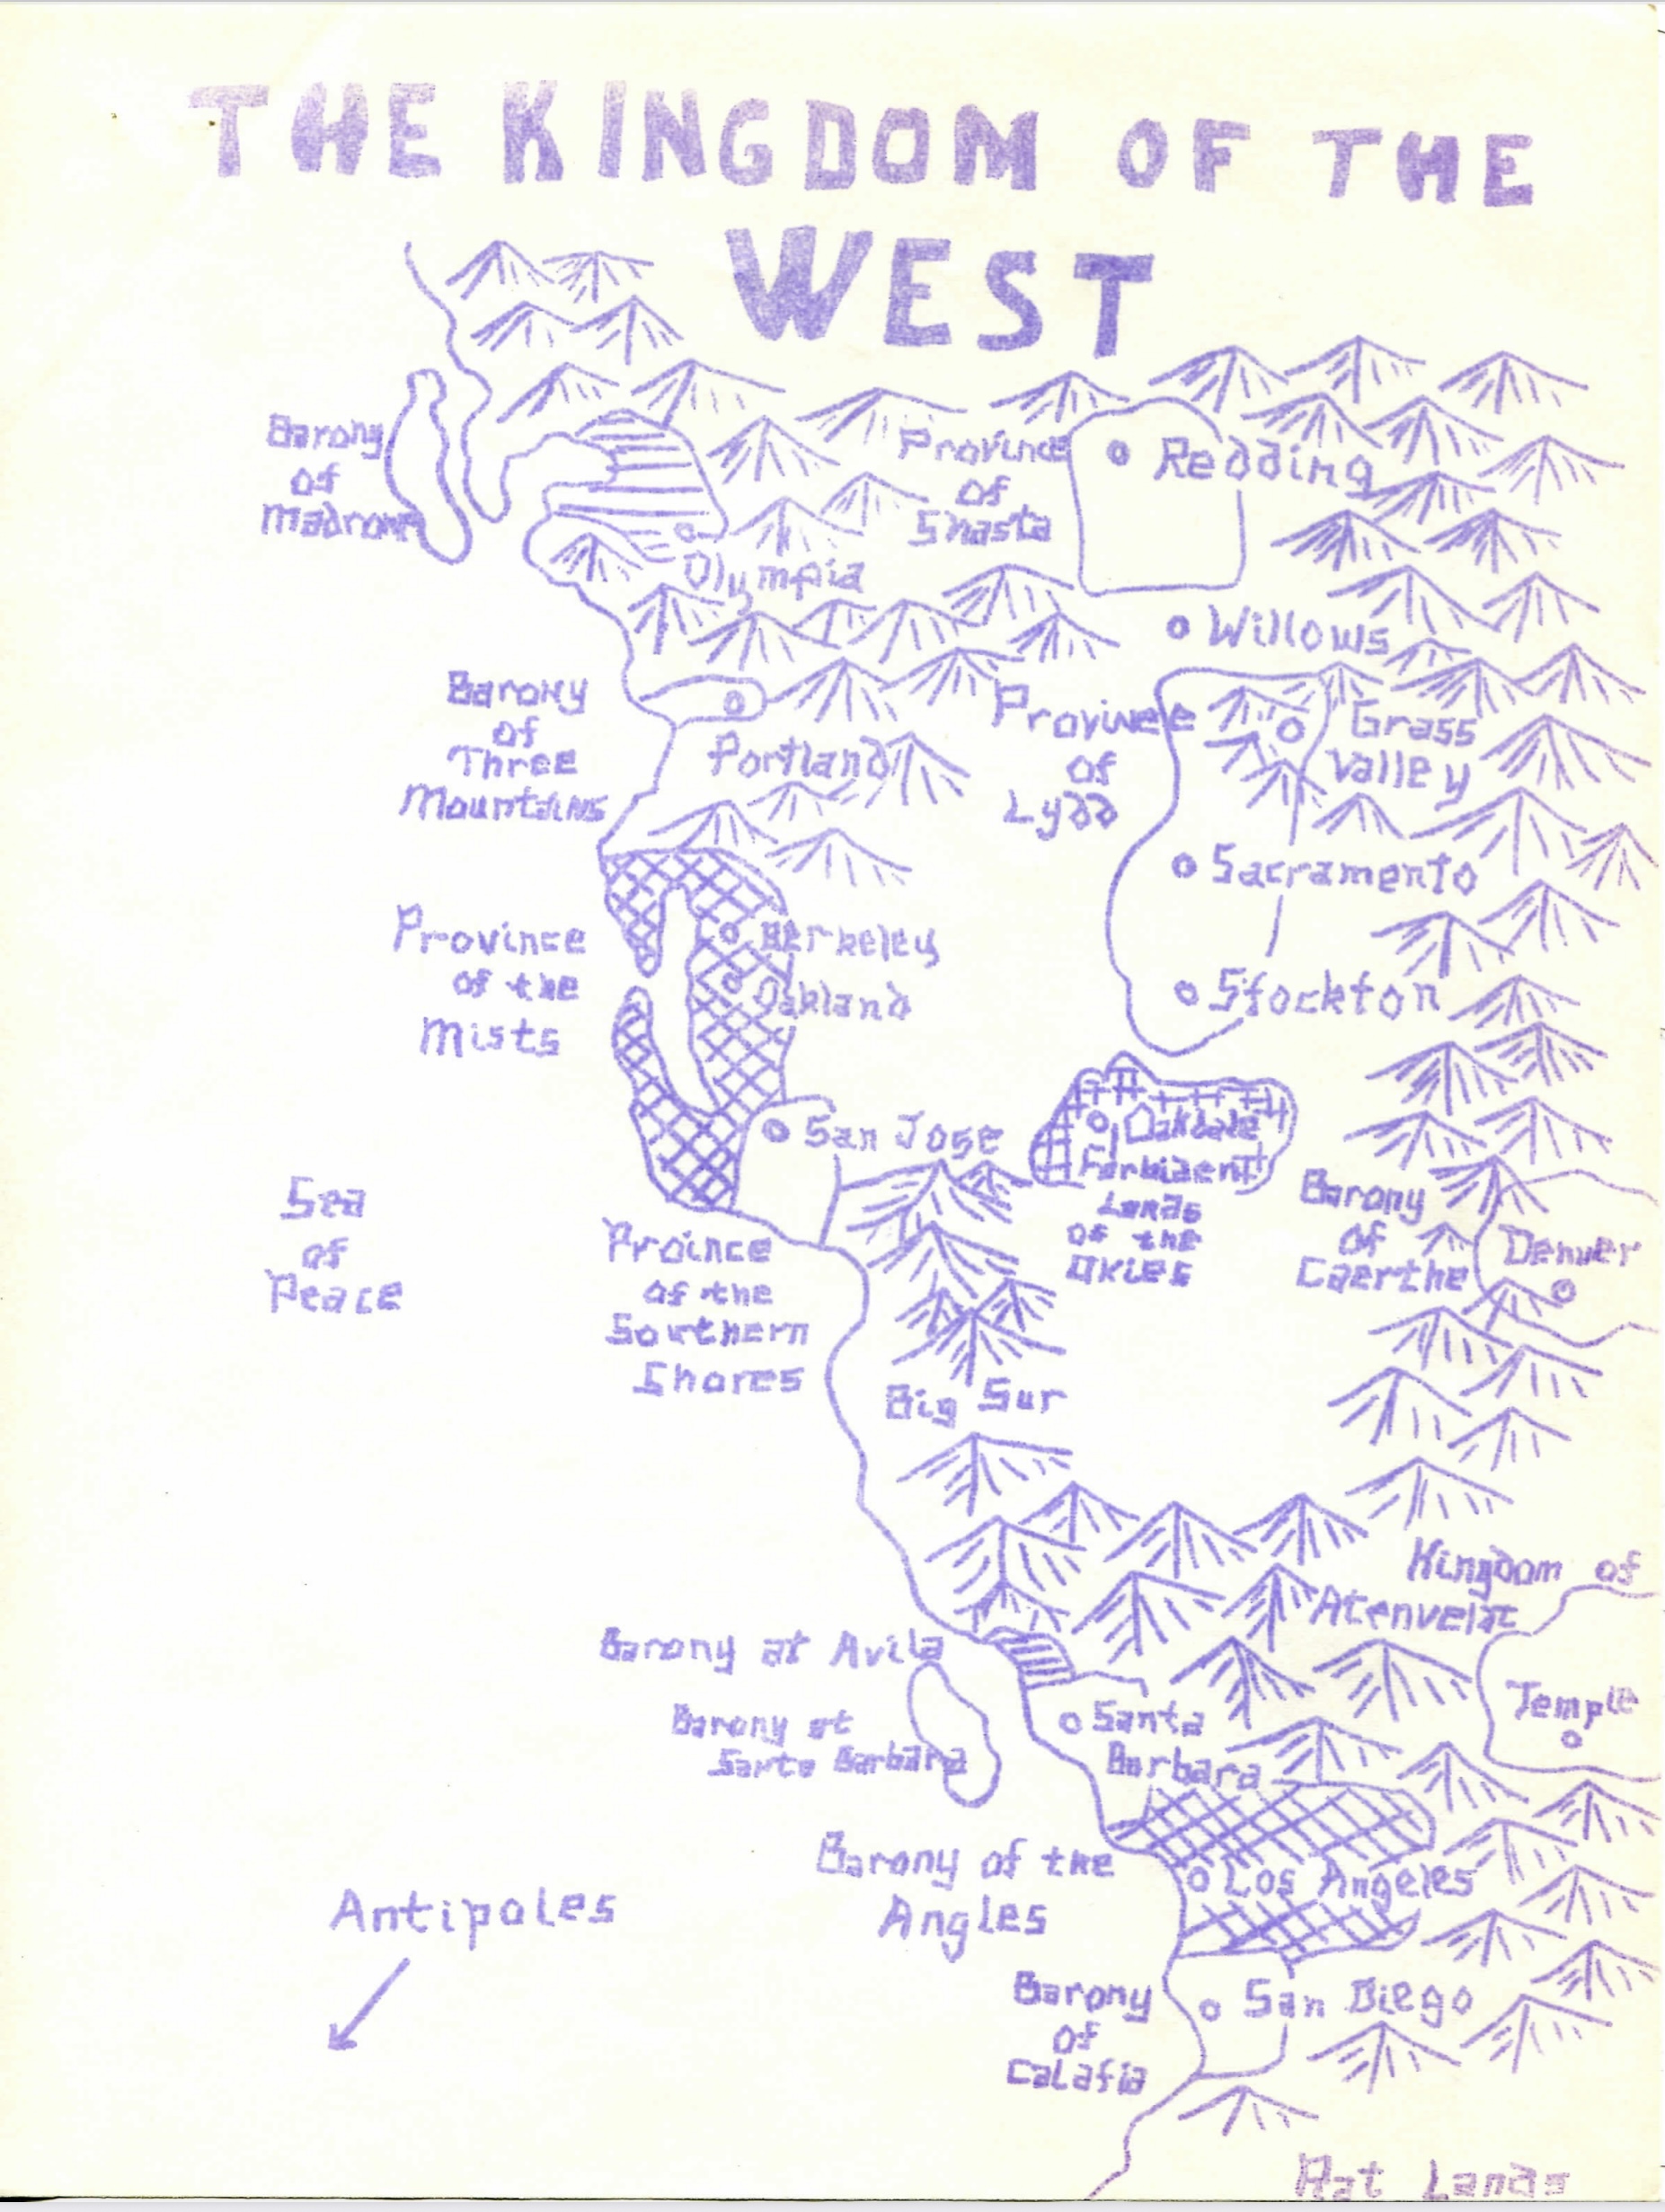 THE KINGDOM OF THE
WEST
Barony
of
Madrone
Province
of
Shasta
Redding
Olympia
Willows
Barony
of
Three
Mountains
Portland
Province
of
Lydd
Grass
Valley
Sacramento
Stockton
Province
of the
Mists
Berkeley
Oakland
San Jose
Oakdale
Forbident
Lands
of the
Okies
Barony
of
Caerthe
Denver
Sea
of
Peace
Proince
of the
Southern
Shores
Big Sur
Kingdom of
Atenveldt
Temple
Barony at Avila
Barony at
Santa Barbara
Santa
Barbara
Barony of the
Angles
Los Angeles
Antipoles
Barony
of
Calafia
San Diego
Hat Lands